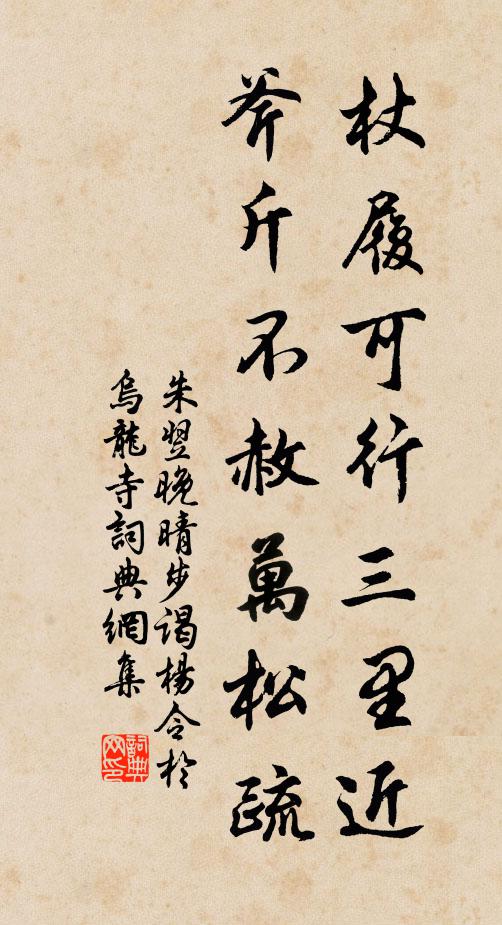 杖履可行三里近
斧斤不赦萬松疏
朱翌晚晴步謁楊令於
烏龍寺詞典網集
詞典
网印